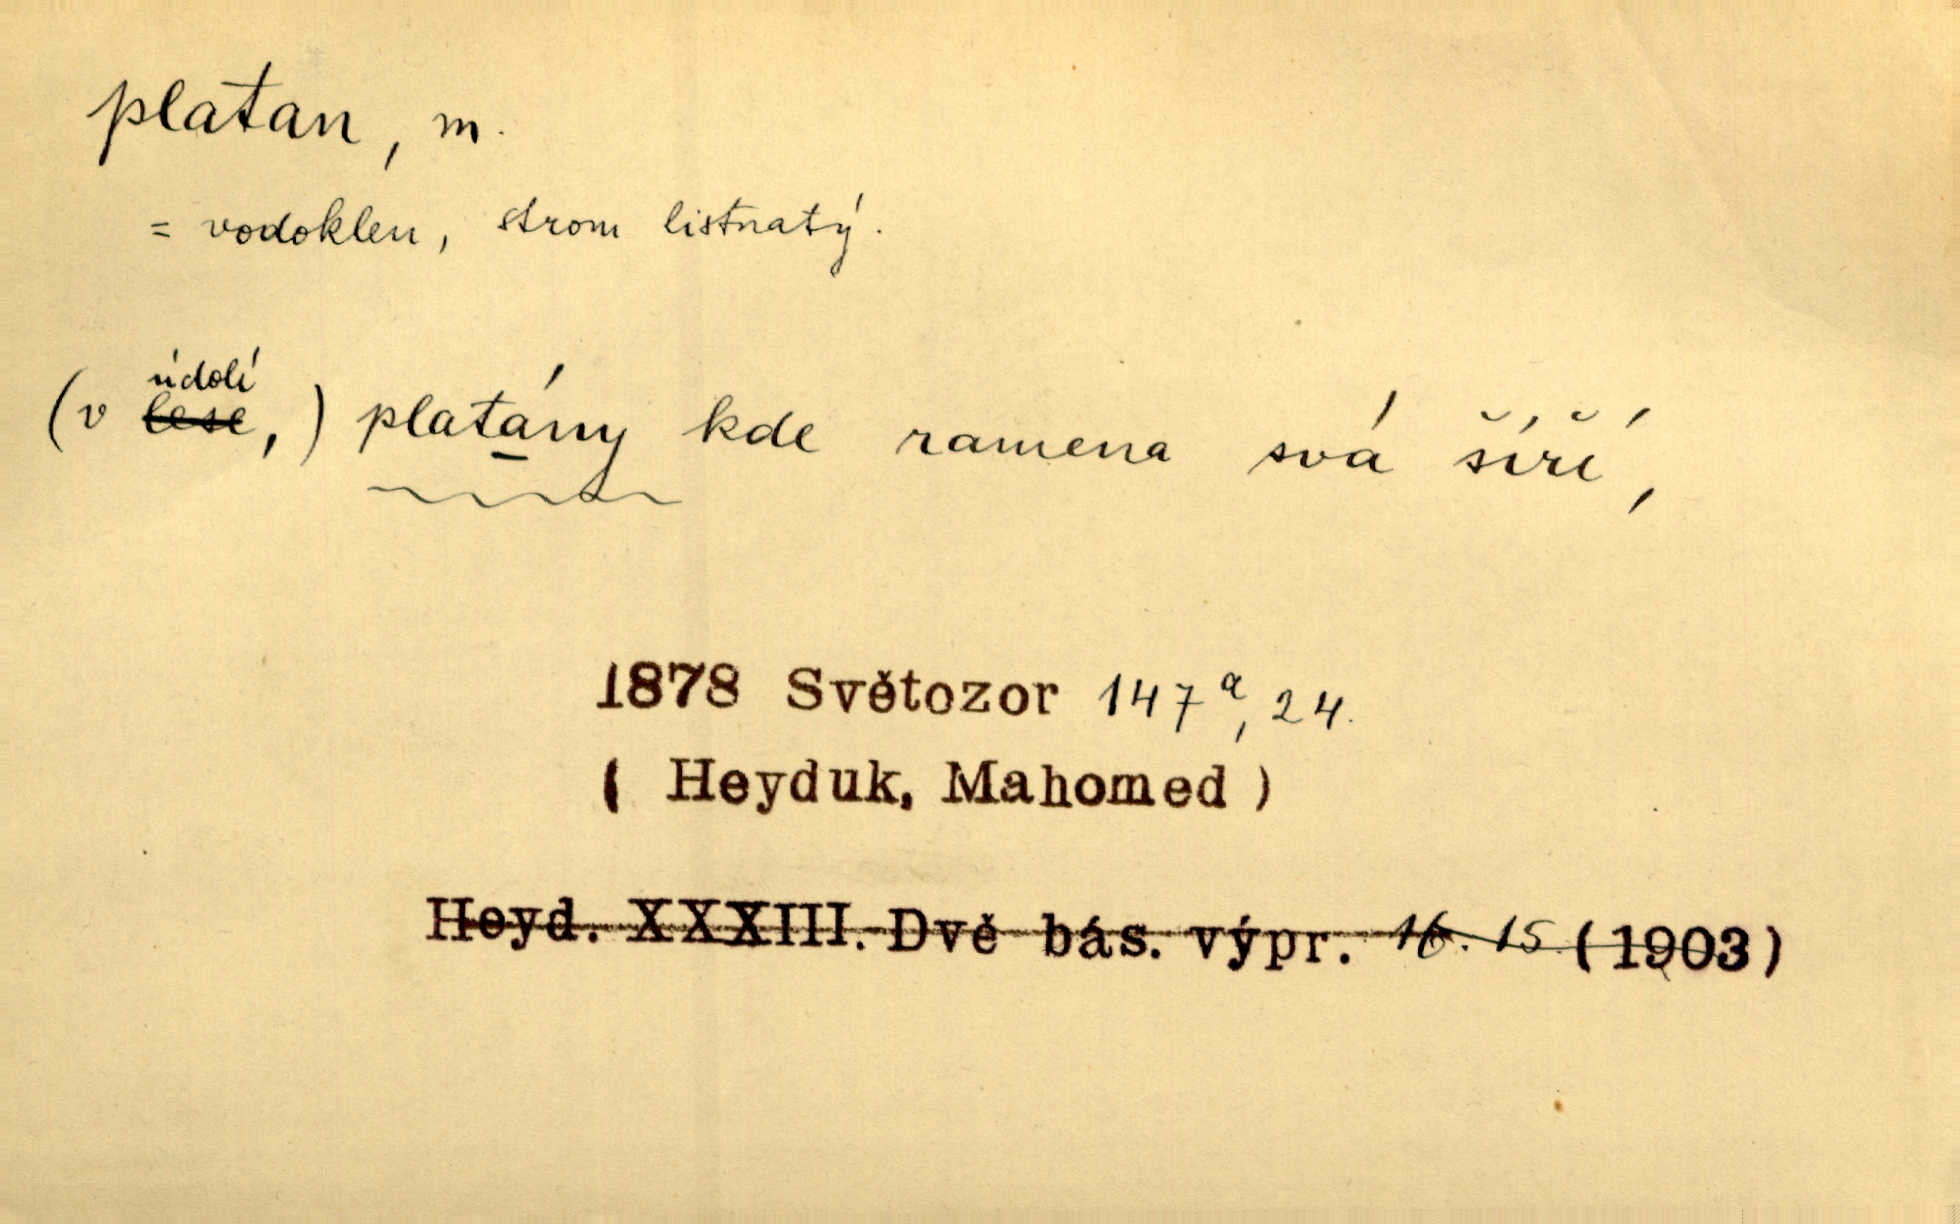 platan, m.
= vodoklen, strom listnatý.
údolí
(v lese,) platány kde ramena svá šíří,
1878 Světozor 147a, 24.
( Heyduk, Mahomed )
Heyd. XXXIII. Dvě bás. výpr. 16. 15 (1903)